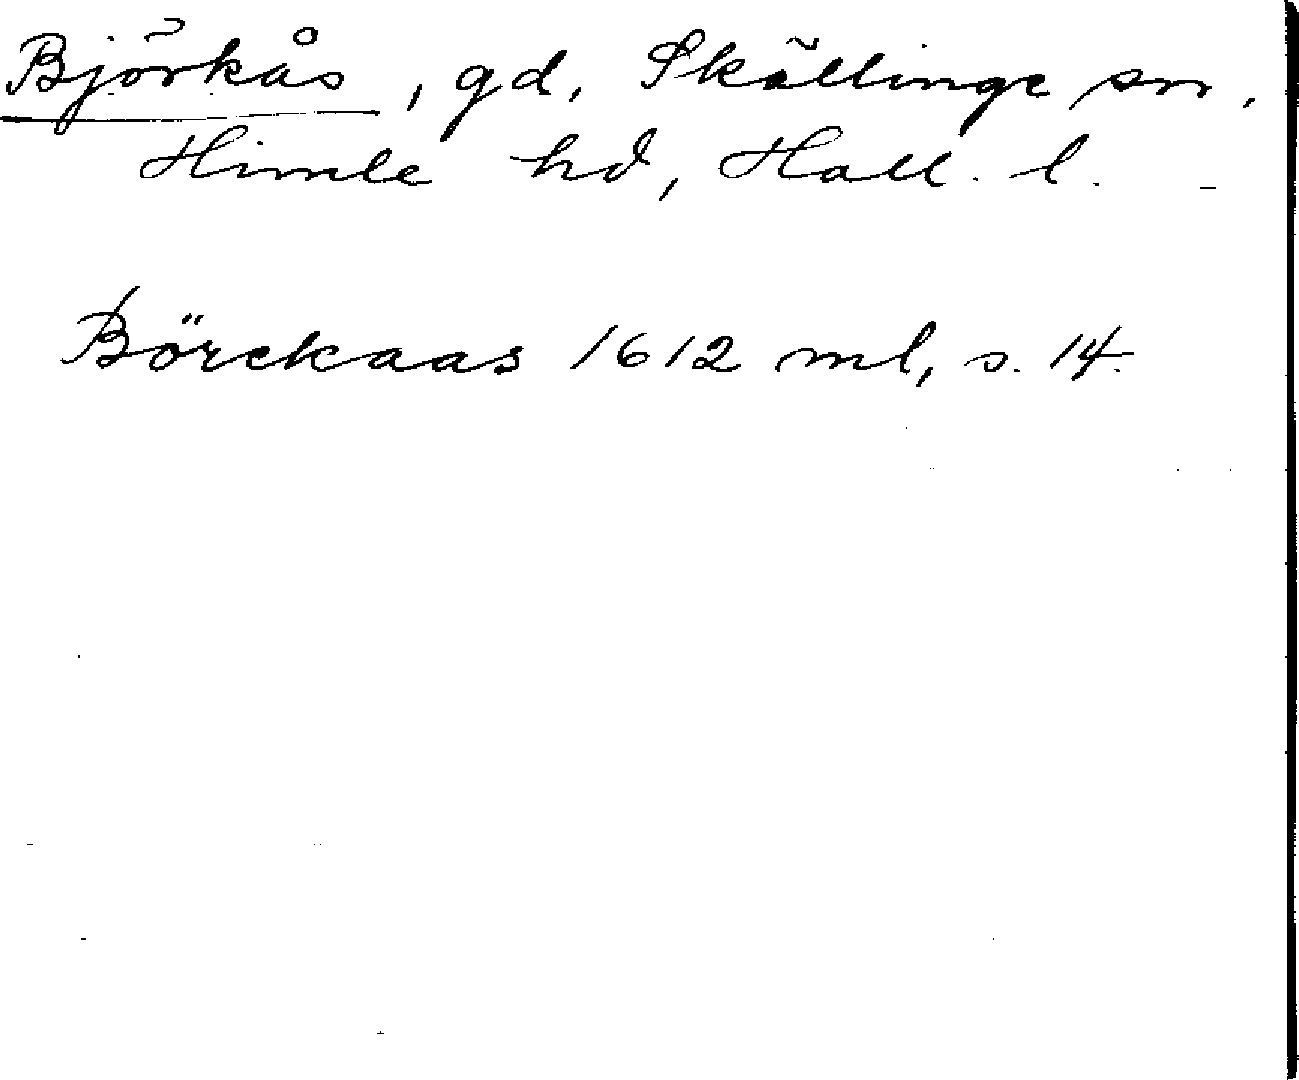 Björkås, gd, Skällinge sn,
Himle hd, Hall. l.
Börckaas 1612 ml, s. 14.